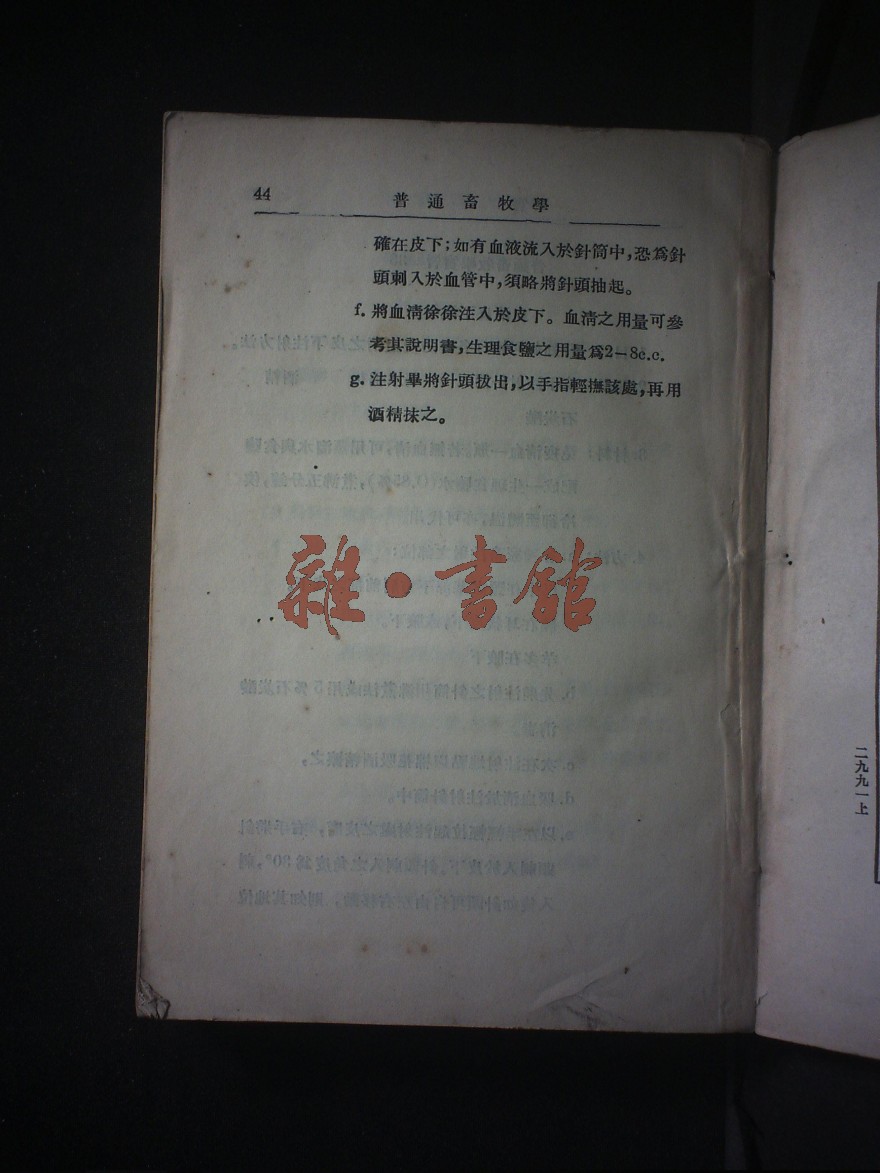 44
普通畜牧學
確在皮下；如有血液流入於針筒中，恐爲針
頭刺入於血管中，須略將針頭抽起。
f. 將血清徐徐注入於皮下。血清之用量可參
考其說明書，生理食鹽之用量爲2—8c.c.
g. 注射畢將針頭拔出，以手指輕撫該處，再用
酒精抹之。
雜·書館
二九九一上